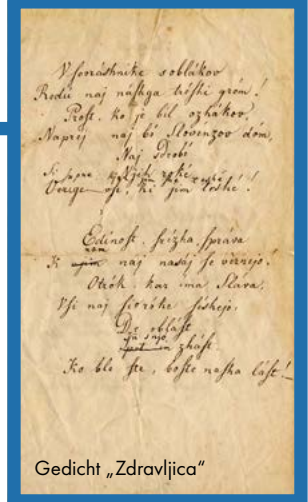 V ſovráshnike s oblákov
Rodú naj náſhga tréſhi gróm!
Proſt, ko je bil ozhákov,
Naprej naj bó Slovenzov dóm,
Naj sdrobé
njih roké
ki jim
Edinoſt, ſrézha, ſpráva
K nam naj nasáj ſe vernejo!
Otrók, kar ima Sláva,
Vſi naj ſi v róke ſéshejo,
De obláſt
zháſt
Ko ſte, boſte naſha láſt!
Gedicht „Zdravljica“